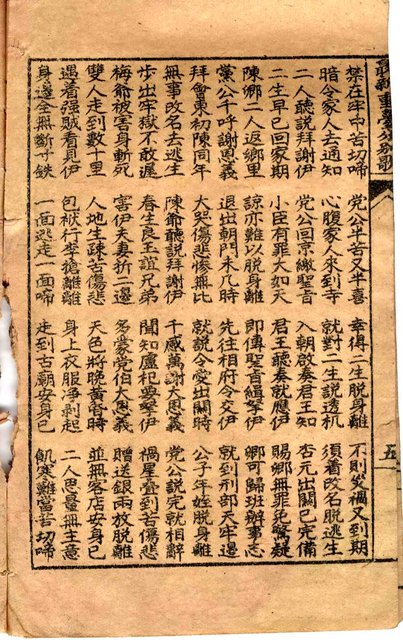 最新重臺分別歌
五
禁在牢中苦切啼 党公半苦又半喜 幸得二生脫身離 不則災禍又到期
暗令家人去通知 心腹家人來到寺 就對二生說透机 須着改名脫逃生
二人聽說拜謝伊 党公回京繳聖旨 入朝啟奏君王知 杏元出關已完備
二生早已回家期 小臣有罪大如天 君王聽奏就應伊 賜卿無罪免驚疑
陳鄉二人返鄉里 諒亦難以脫身離 即傳聖旨緝拏伊 卿可歸班辦事志
黨公千呼謝恩義 退出朝門未几時 先往相府令交伊 就到刑部天牢邊
拜會東初陳同年 大哭傷悲慘無比 就說令愛出關時 公子年姪脫身離
無事改名去逃生 陳爺聽說拜謝伊 千感萬謝大恩義 党公說完就相辭
步出牢獄不敢遲 春生良玉誼兄弟 聞知盧杞要拏伊 禍星疊到苦傷悲
梅爺被害身斬死 宮伊夫妻折二邊 多蒙党伯大恩義 贈送銀兩放脫離
雙人走到數十里 人地生疎苦傷悲 天色將晚黄昏時 並無客店安身己
遇着强賊看見伊 包袱行李搶離離 身上衣服净剥起 二人思量無主意
身邊全無斷寸鉄 一面逃走一面啼 走到古廟安身己 飢寒難當苦切啼